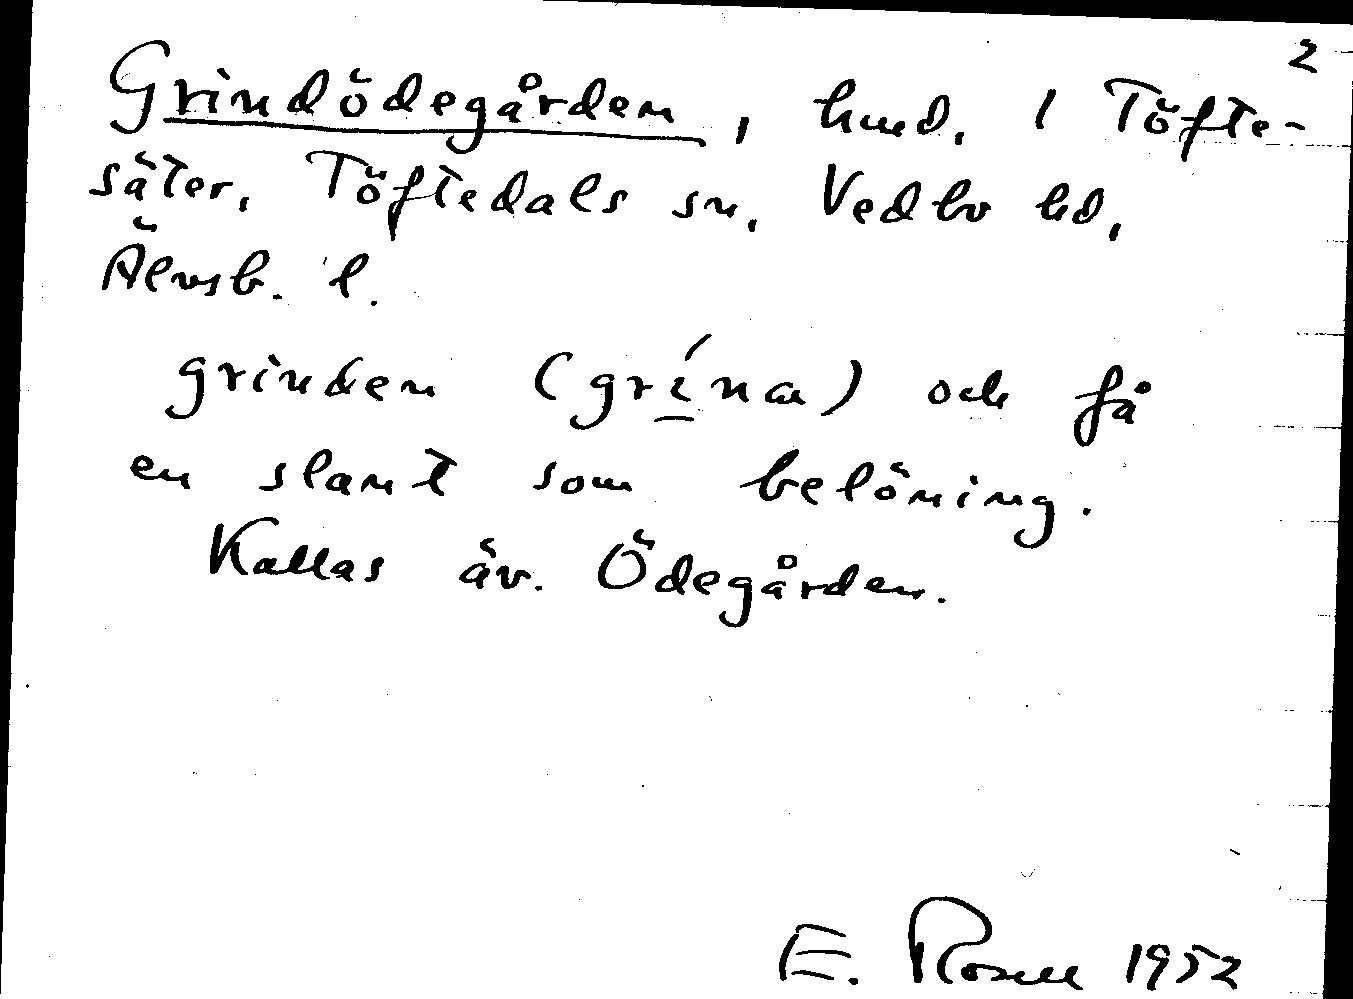 2
Grindödegården, hmd. 1 Töfte-
säter, Töftedals sn, Vedbo hd,
Älvsb. l.
grinden (grína) och få
en slant som belöning.
Kallas äv. Ödegården.
E. Rosell 1952